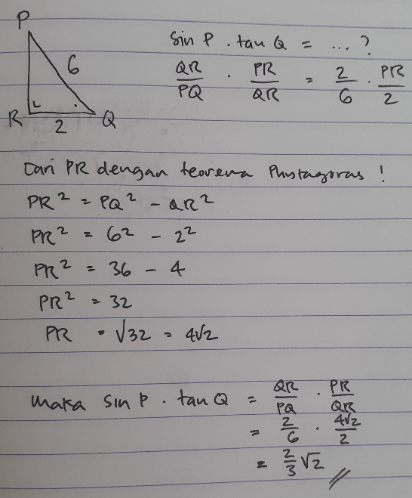 P
6
R
2
Q
sin P . tan Q = ... ?
QR/PQ . PR/QR = 2/6 . PR/2
Cari PR dengan teorema Phytagoras !
PR² = PQ² - QR²
PR² = 6² - 2²
PR² = 36 - 4
PR² = 32
PR = √32 = 4√2
maka sin P . tan Q = QR/PQ . PR/QR
= 2/6 . 4√2/2
= 2/3 √2